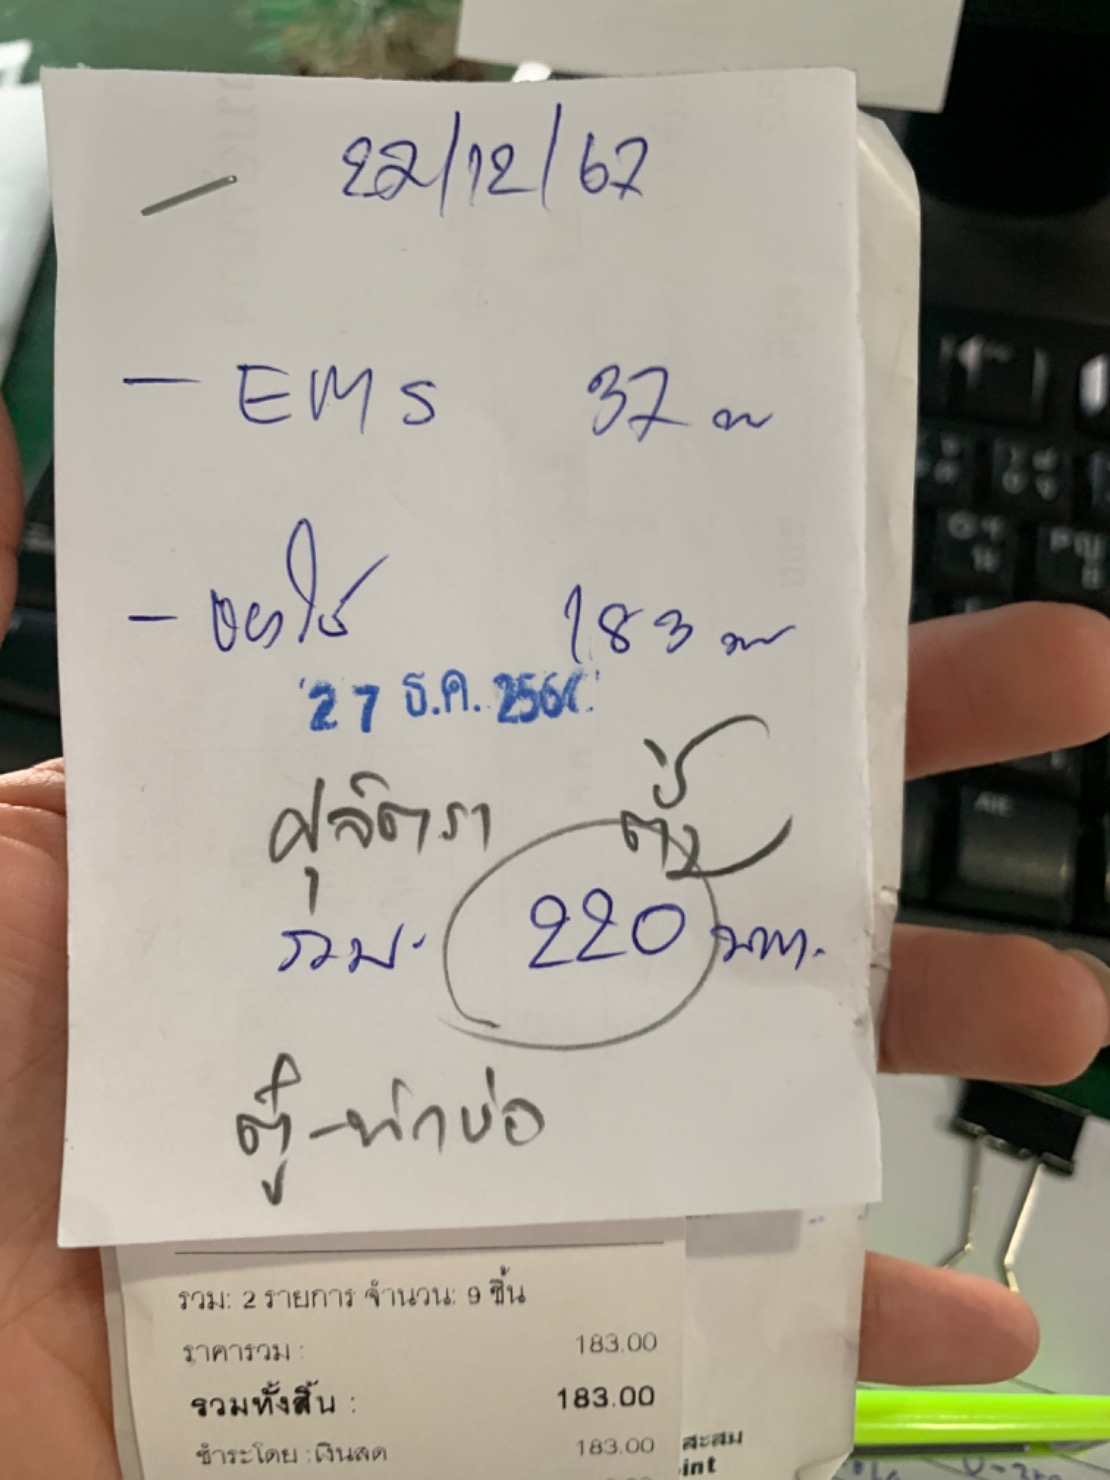 22/12/67
- EMS 37 บ
- ของใช้ 183 บ
27 ธ.ค. 256
สุจิตรา ตั้ว
รวม. 220 บาท.
ตู้-พักบ่อ
รวม: 2 รายการ จำนวน: 9 ชิ้น
ราคารวม : 183.00
รวมทั้งสิ้น : 183.00
ชำระโดย :เงินสด 183.00
สะสม
int